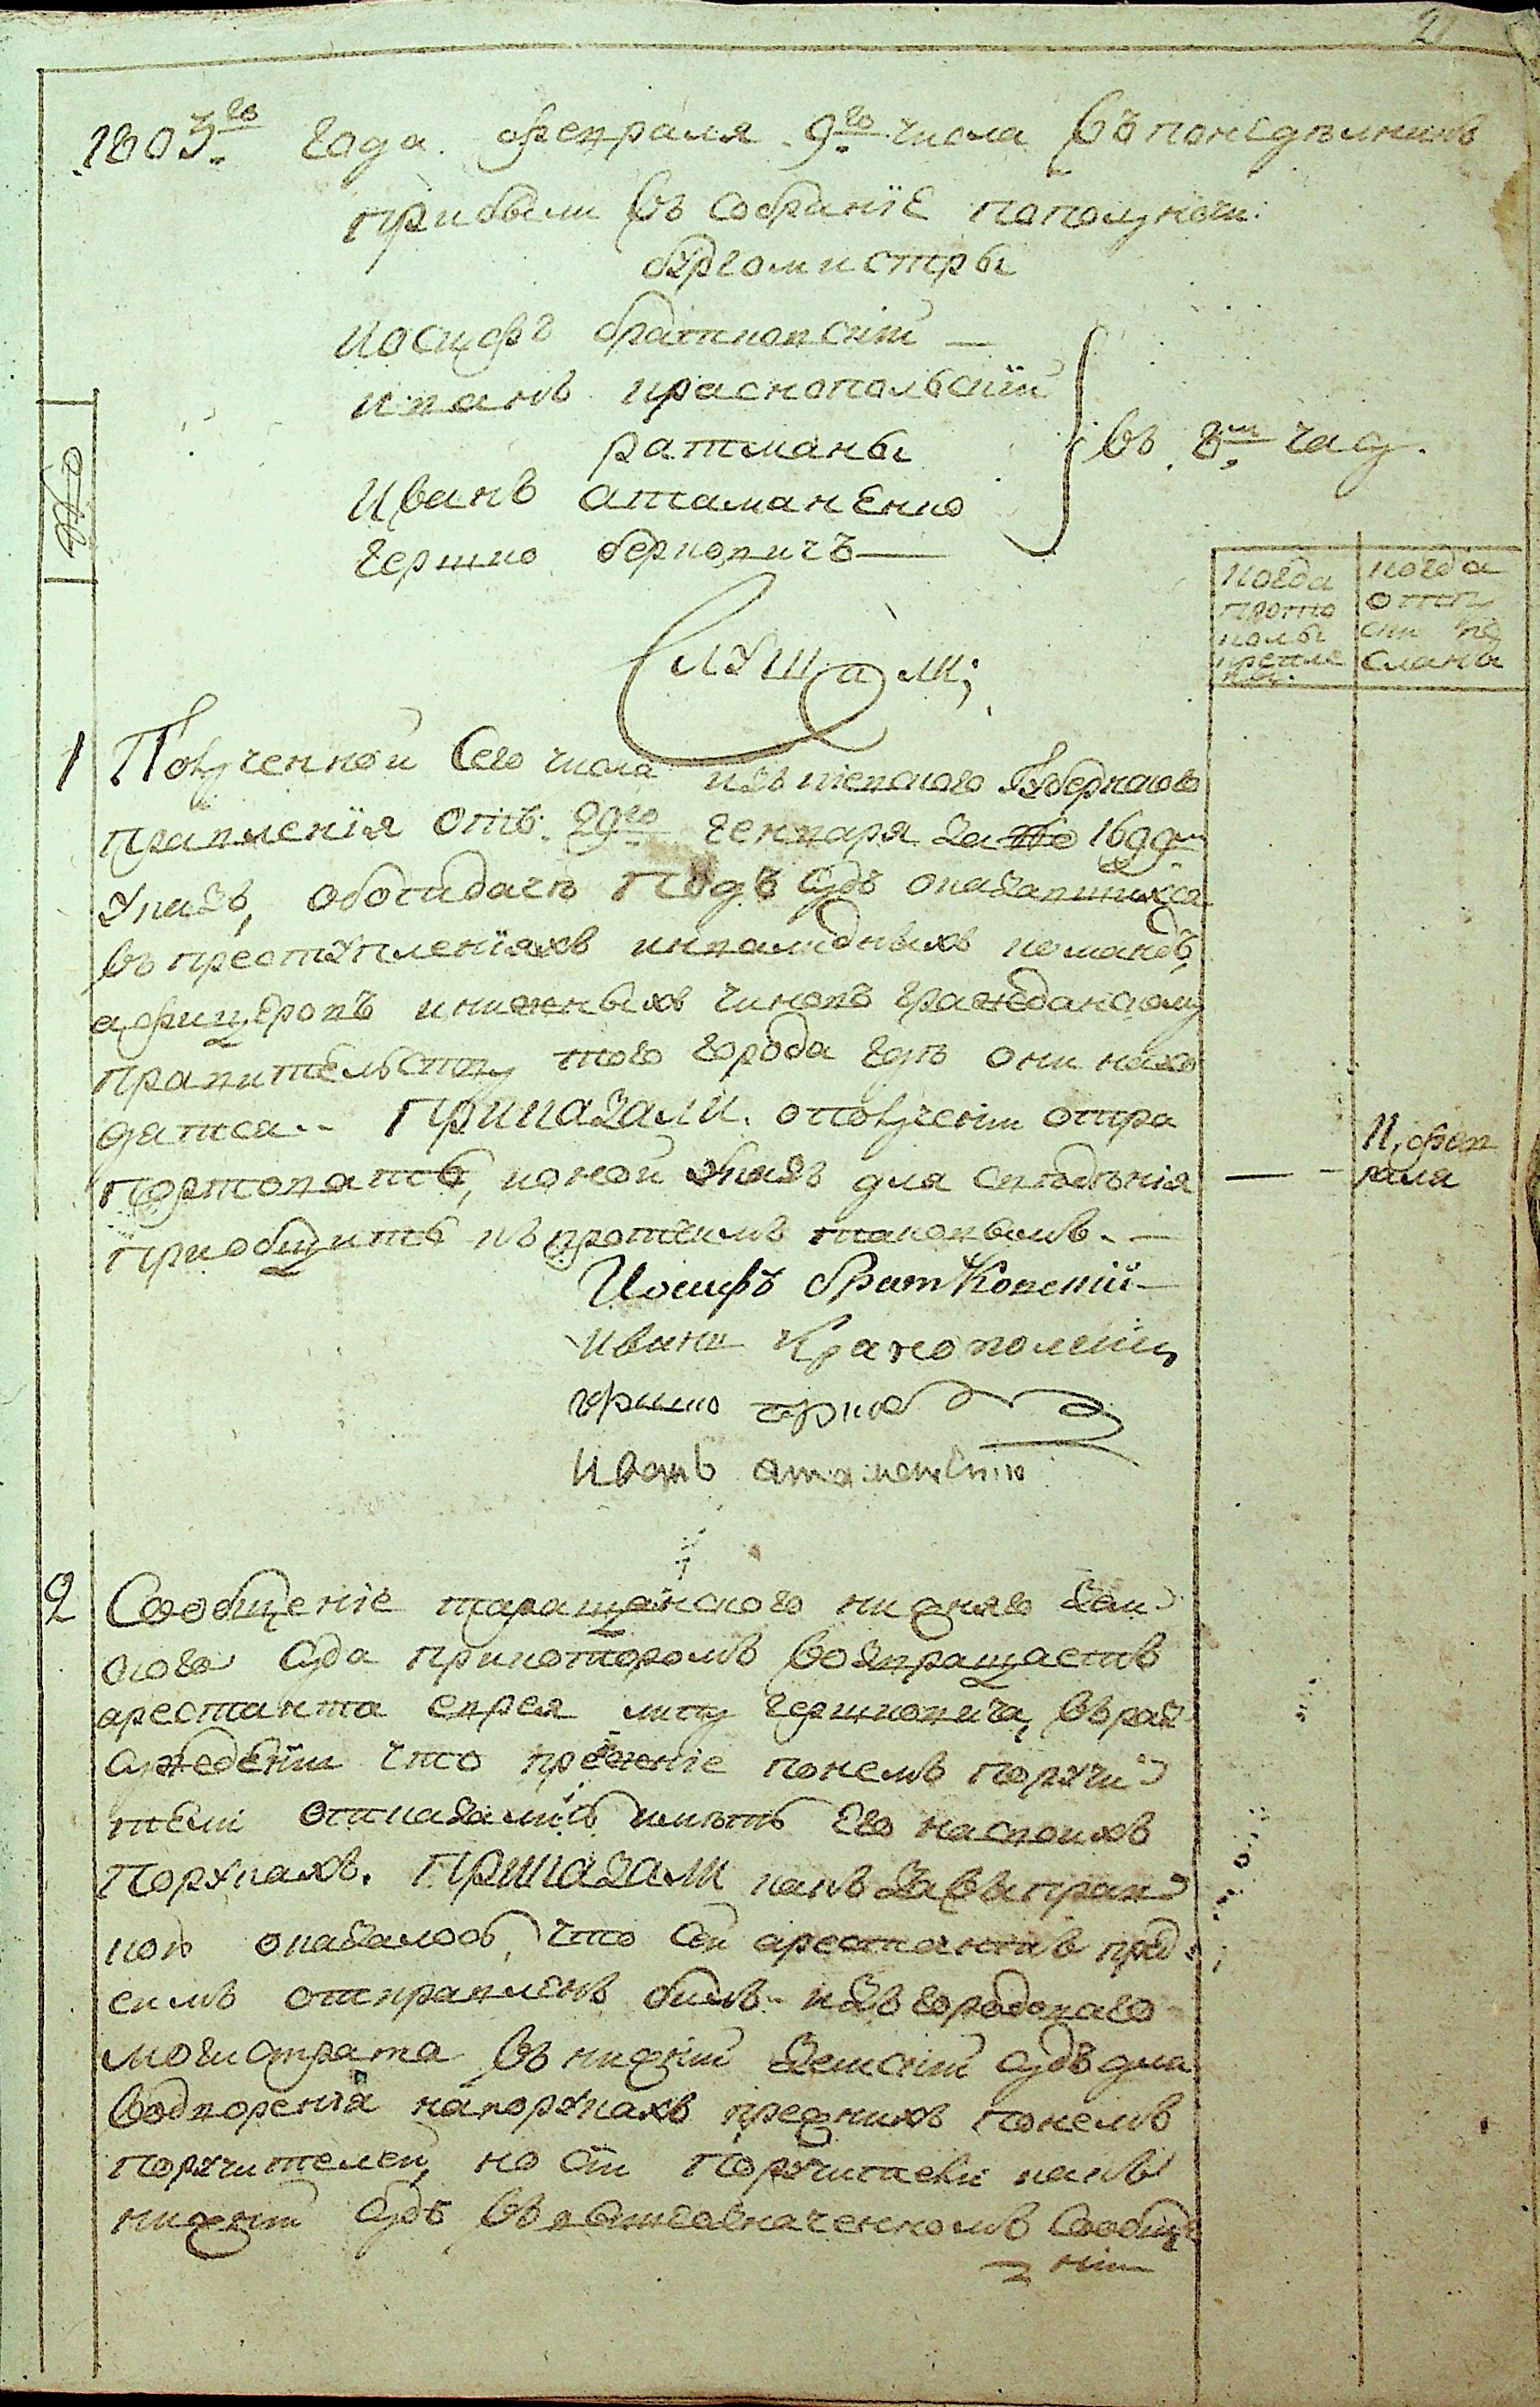 21
1803го года февраля 9го числа въ понедѣлникъ
прибыли въ собранїе пополуночи
бургомистры
Иосифъ братковскій
иванъ краснопольскїй
ратманы
въ 8м часу.
Иванъ атаманенко
гершко берковичъ
когда протоколы крепленъ.
когда отпуски посланы
Слушали;
1 Полученной Сего числа изъ киевского Губернского
правленїя отъ 29го генваря за № 1699м
указъ, оботидачѣ подъ судъ оказавшихся
въ преступленїяхъ инвалидныхъ командъ,
афицеровъ инижныхъ чиновъ гражданскому
правительству того города гдѣ они нахо
дятся. приказали. ополученіи отра
портовать, коной указъ для свѣденія
11, февраля
приобщить къ протчимъ таковымъ.
Иосифъ братковскій
иванъ краснополскій
гершко берко
Иванъ атаманенко
2 Сообщеніе таращанского нижняго зем
ского суда прикоторомъ возвращаетъ
арестанта еврея ицку гершковича, въ раз
суждении что прежніе понемъ поручи
тели отказались имѣть его насвоихъ
порукахъ. приказали какъ засправ
кою оказалось, что сей арестантъ пред
симъ отправленъ былъ изъ городоваго
магистрата въ нижній земскій судъ для
водворенія напорукахъ прежнихъ понемъ
поручителей, но сіи поручители какъ
нижній судъ въ вышеозначенномъ сообще
ніи